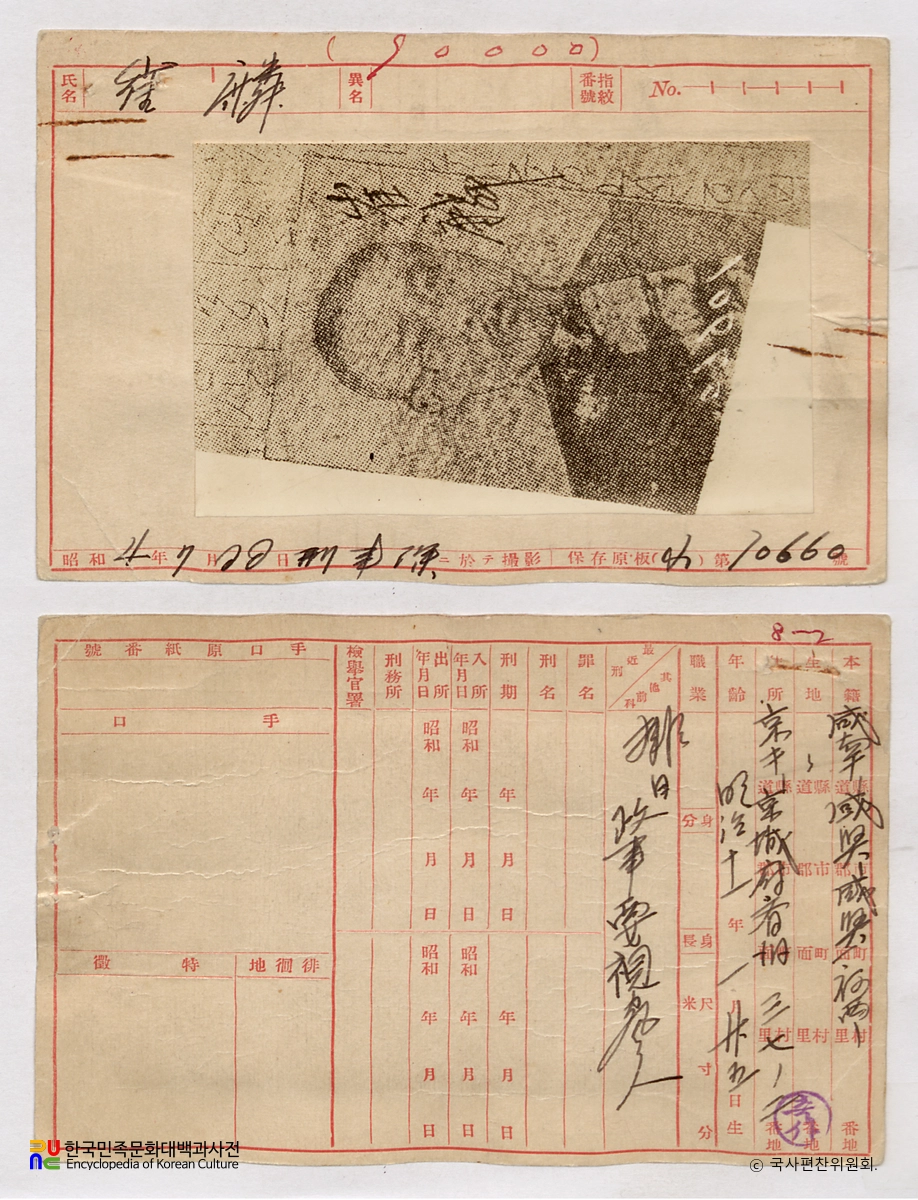 (90000)
氏名 崔麟 異名 指紋番號 No.
崔麟
昭和 年 7 月 28 日 刑事課 ニ於テ撮影 保存原板( ) 第 10660 號
8-2
本籍 咸南 咸興 咸興
道縣 郡市 面町 里村 番地
生地 〃
道縣 郡市 面町 里村 番地
住所 京キ 京城府 三七一
道縣 番地
年齡 明治十一年一月廿五日生
職業
身分
身長 米尺 寸 分
最近刑 其他前科
排日
政事要視察人
罪名
刑名
刑期 年 月 日 年 月 日
入所年月日 昭和 年 月 日 昭和 年 月 日
出所年月日 昭和 年 月 日 昭和 年 月 日
刑務所
檢擧官署
手口原紙番號
手口
徘徊地
特徵
한국민족문화대백과사전
Encyclopedia of Korean Culture
© 국사편찬위원회.